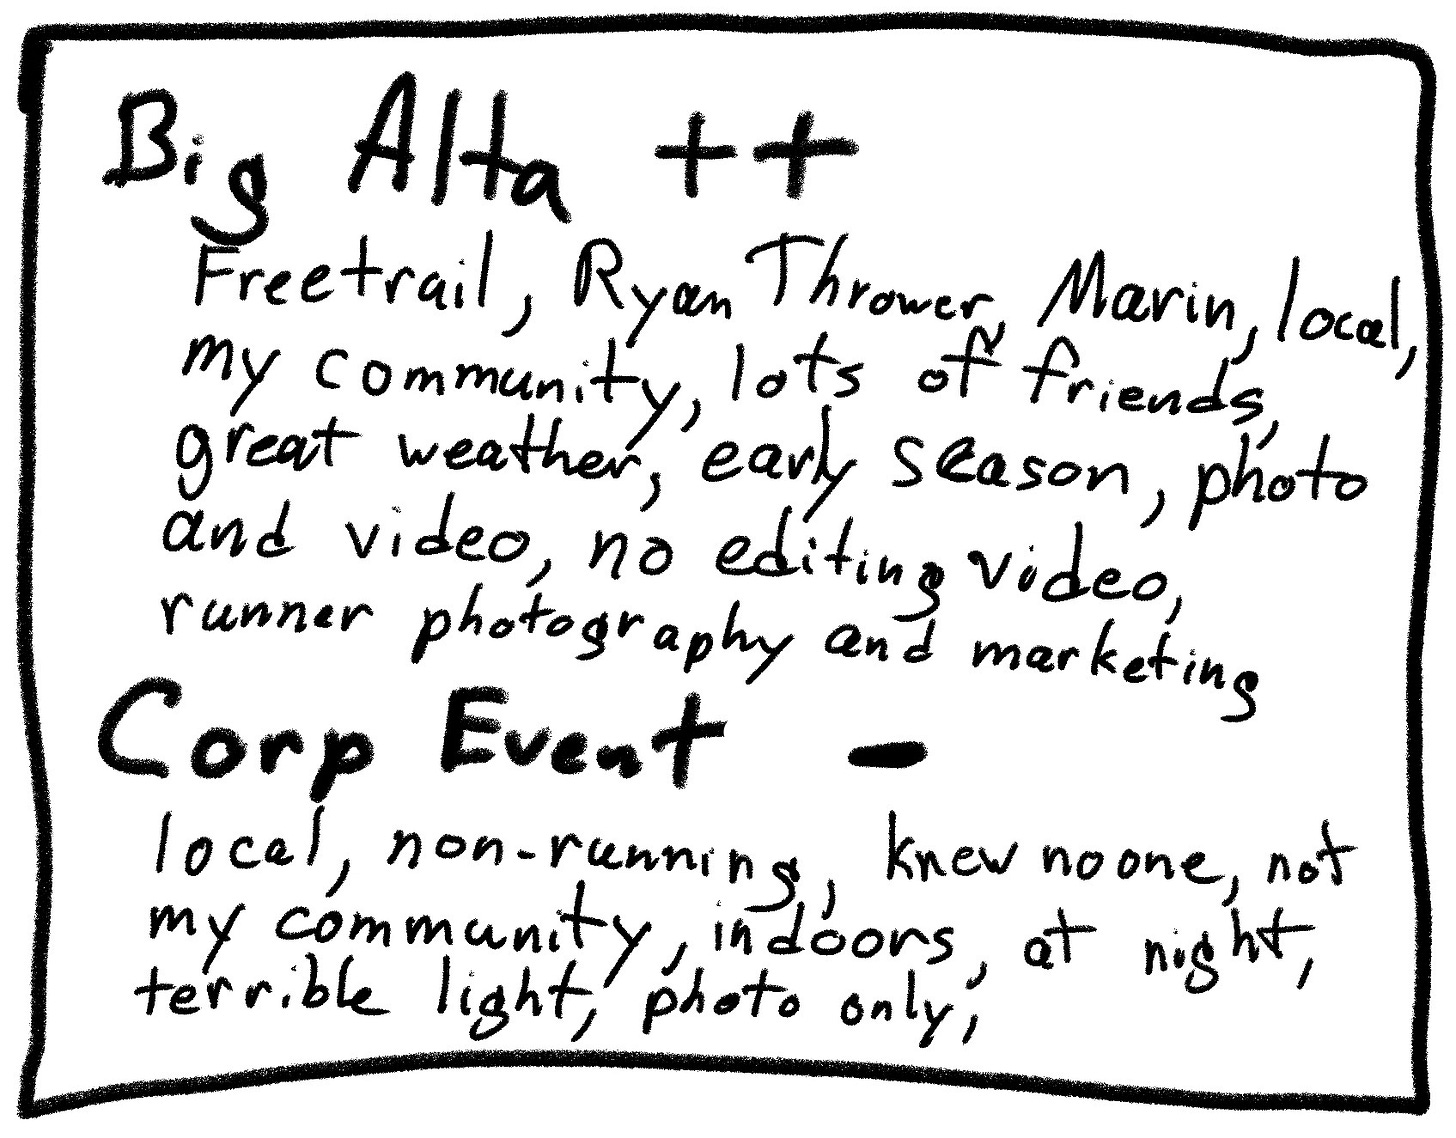 Big Alta ++
Freetrail, Ryan Thrower, Marin, local,
my community, lots of friends,
great weather, early season, photo
and video, no editing video,
runner photography and marketing
Corp Event -
local, non-running, knew no one, not
my community, indoors, at night,
terrible light, photo only,